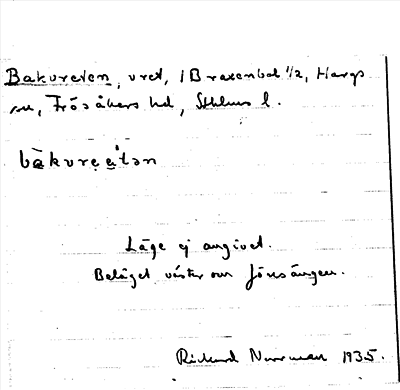 Bakvreten, vret, 1 Braxenbol 1/2, Hargs
sn, Frösåkers hd, Sthlms l.
Läge ej angivet.
Beläget väster om Jönsängen.
Richard Norrman 1935.